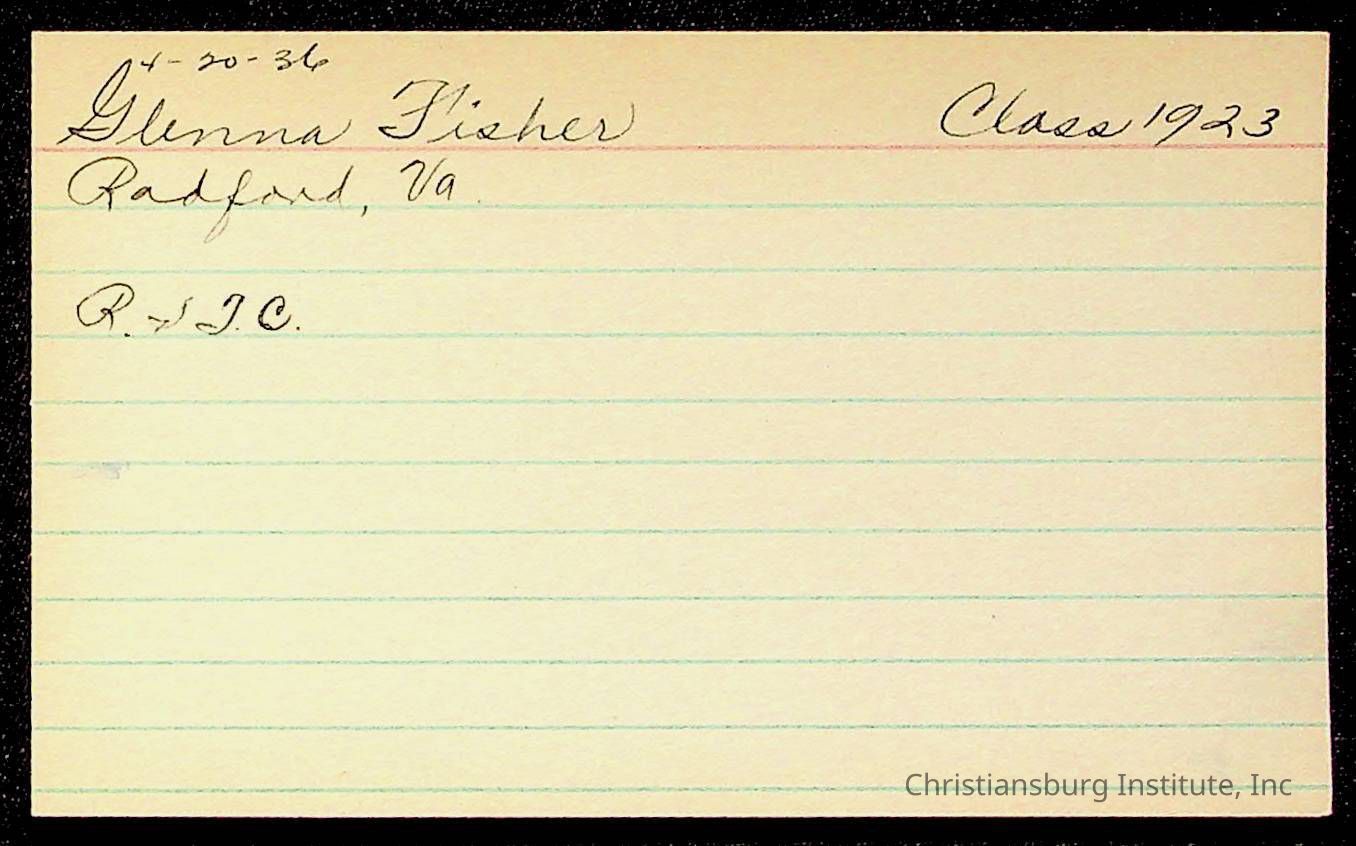 4-20-36
Glenna Fisher Class 1923
Radford, Va.
R. & T. C.
Christiansburg Institute, Inc